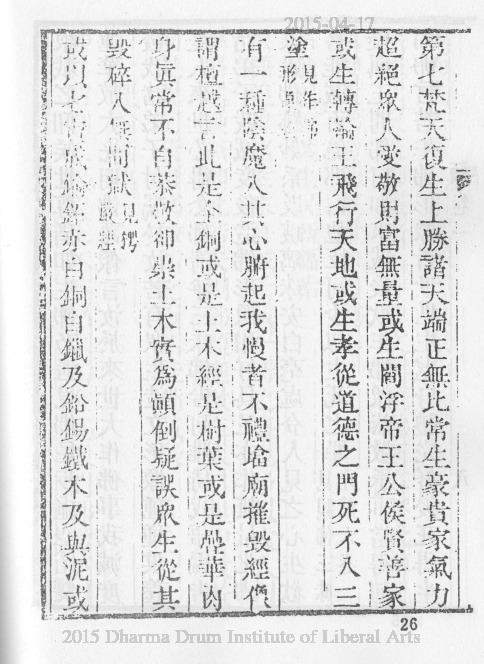 2015-04-17
第七梵天復生上勝諸天端正無比常生豪貴家氣力
超絕眾人愛敬財富無量或生閻浮帝王公侯賢善家
或生轉輪王飛行天地或生孝從道德之門死不入三
塗見作佛形像
有一種陰魔入其心腑起我慢者不禮墖廟摧毀經像
謂檀越言此是金銅或是土木經是樹葉或是疊華肉
身眞常不自恭敬卻崇土木實為顚倒疑誤眾生從其
毀碎入無間獄見楞嚴經
或以七寶成鍮鉐赤白銅白鑞及鉛錫鐵木及與泥或
26
2015 Dharma Drum Institute of Liberal Arts